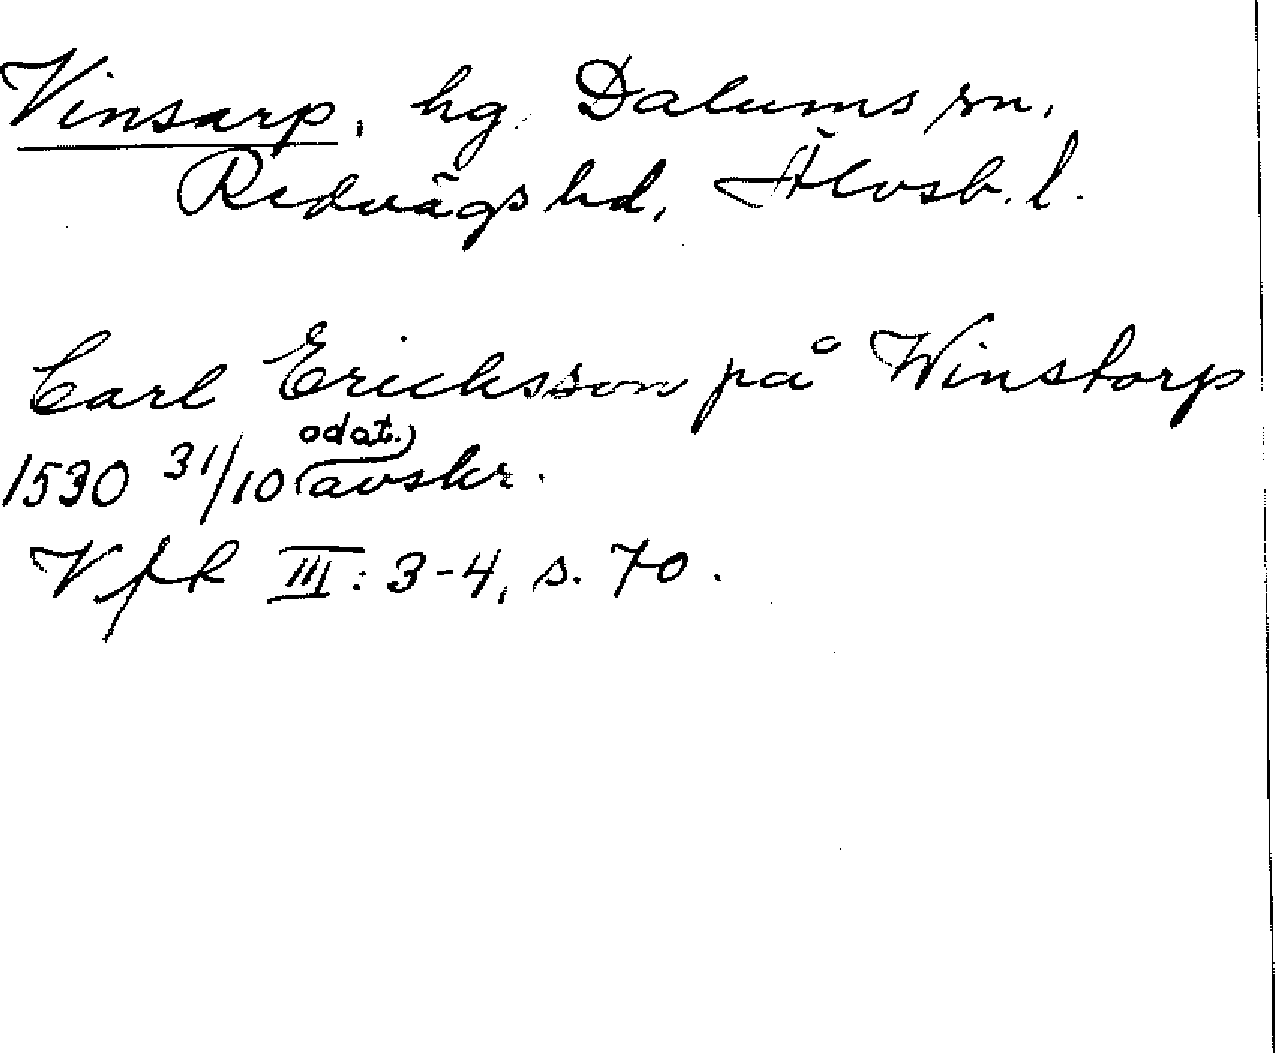 Vinsarp, hg. Dalums sn.
Redvägs hd, Älvsb. l.
Carl Ericksson på Winstorp
1530 31/10 (odat. avskr.)
VfR III: 3-4, s. 70.